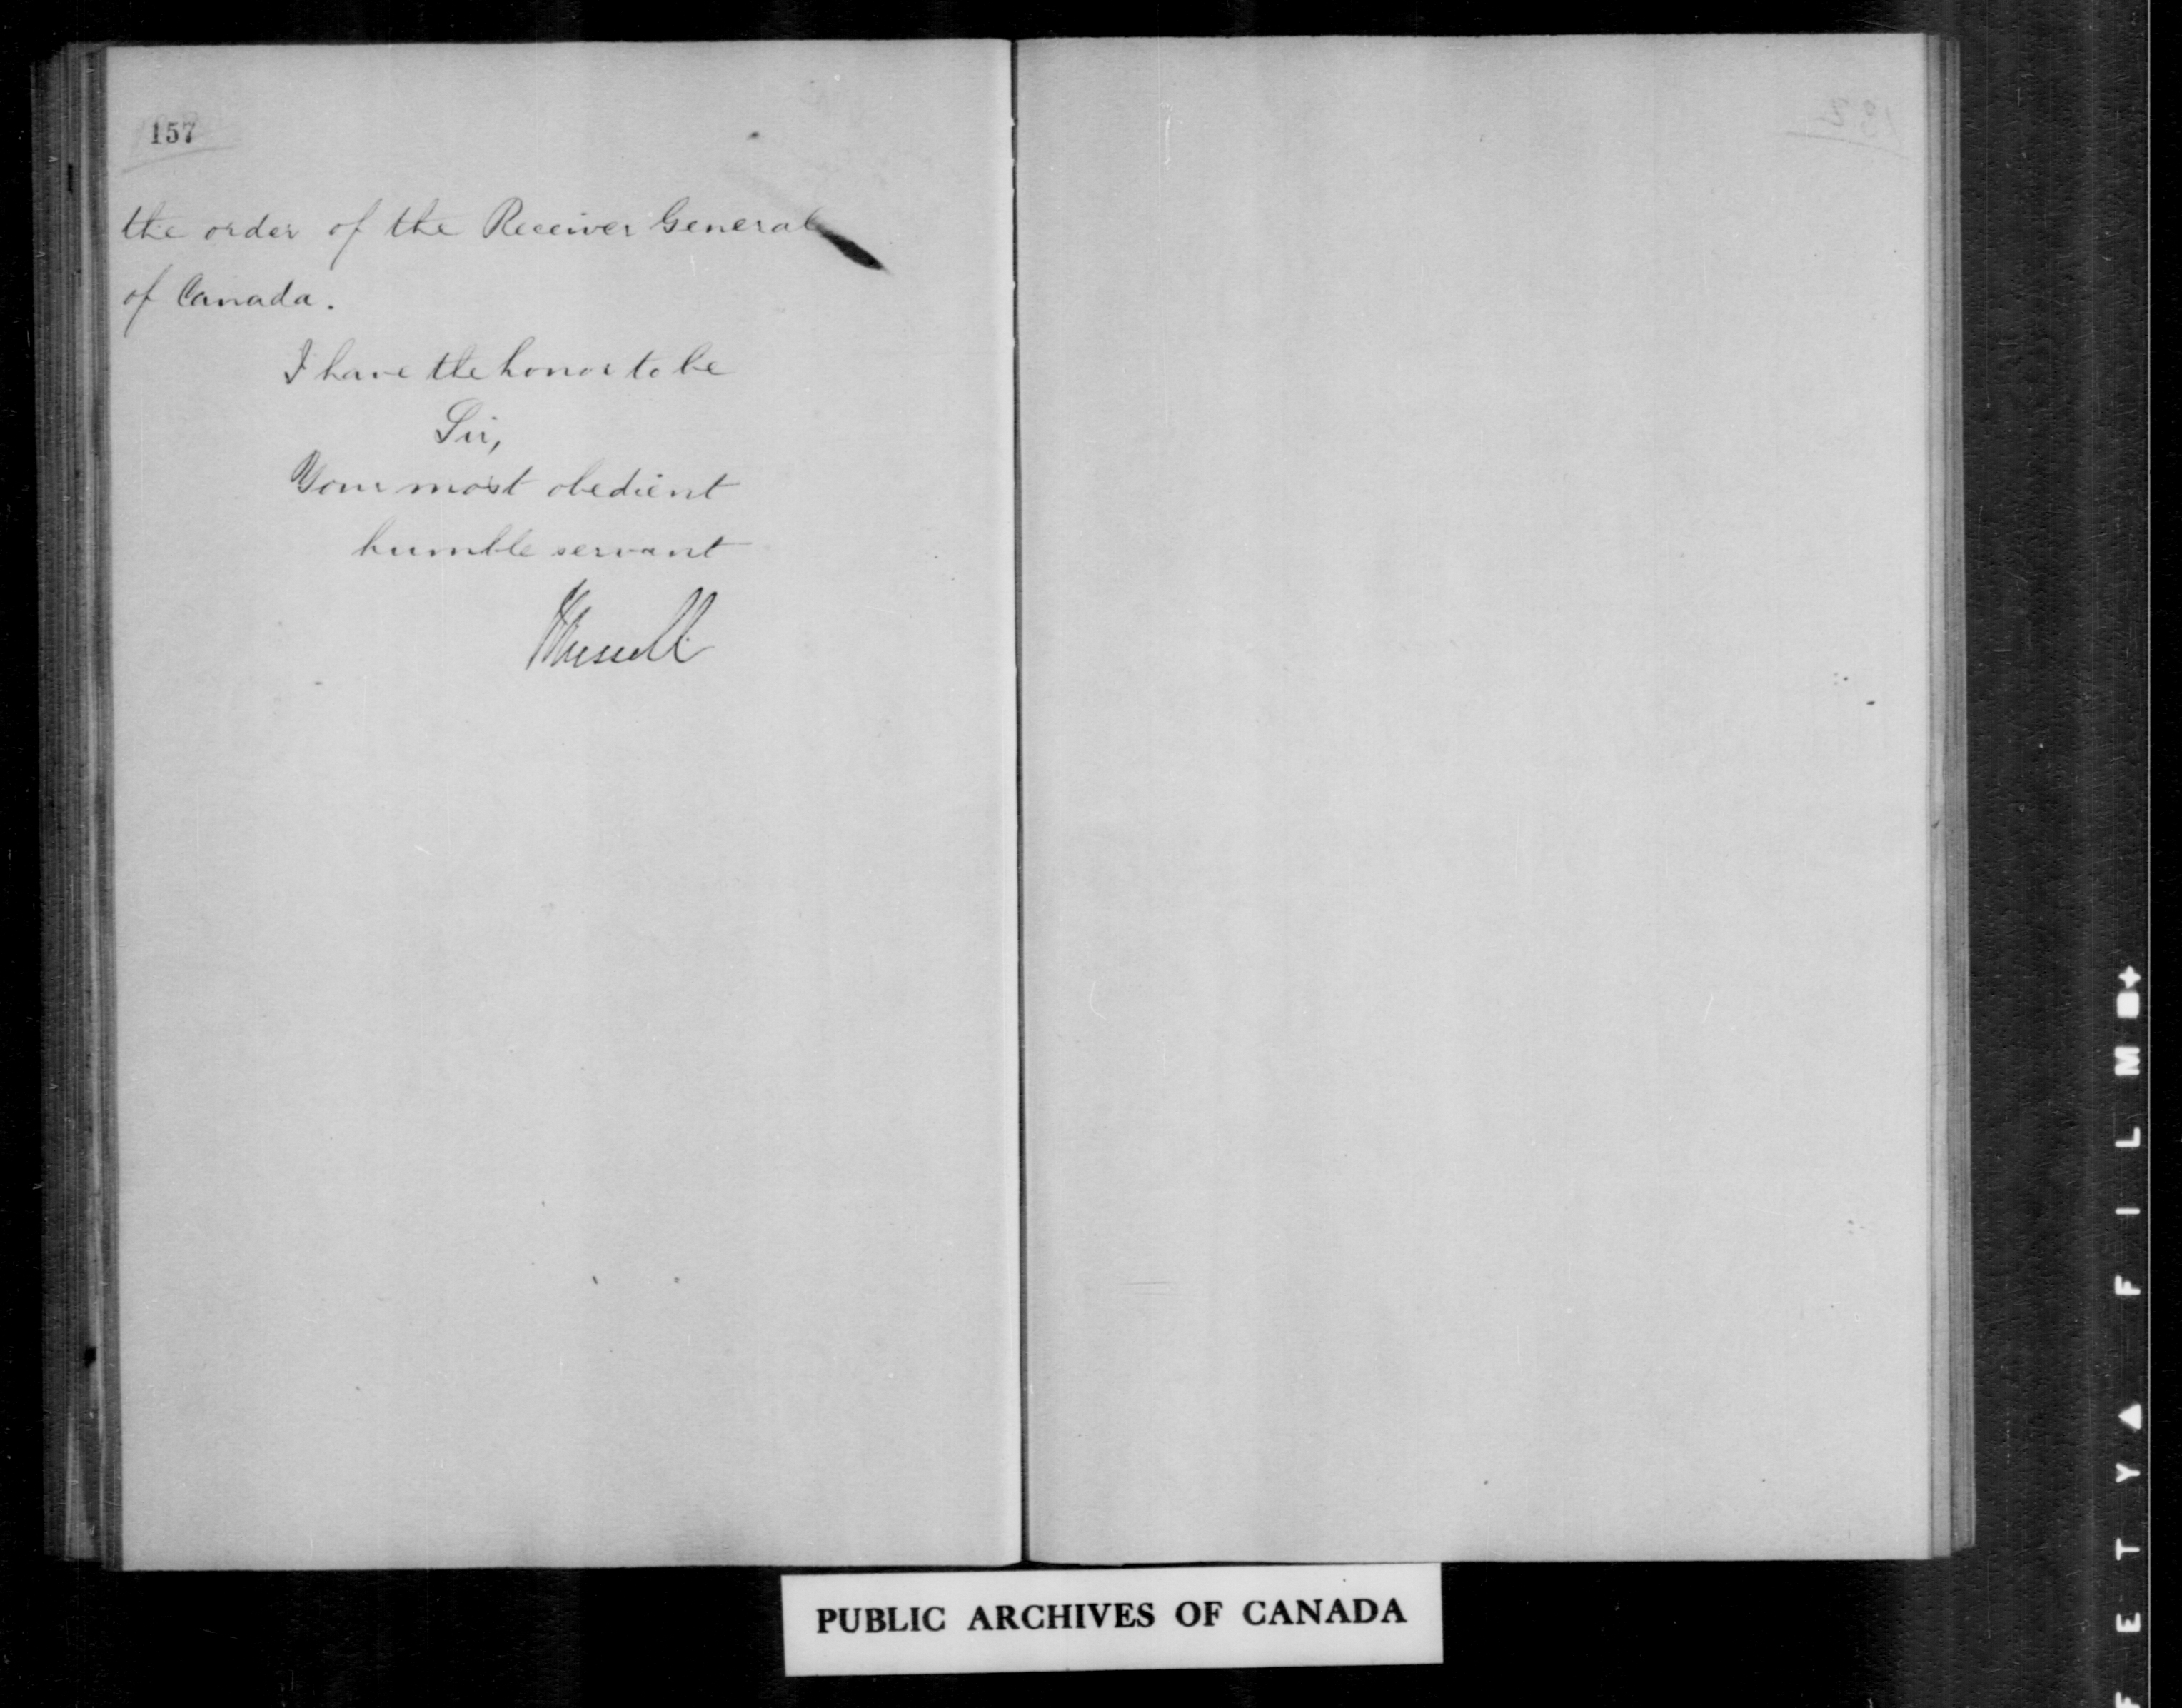 157
the order of the Receiver General
of Canada.
I have the honor to be
Sir,
Your most obedient
humble servant
PUBLIC ARCHIVES OF CANADA
F E T Y ▲ F I L M